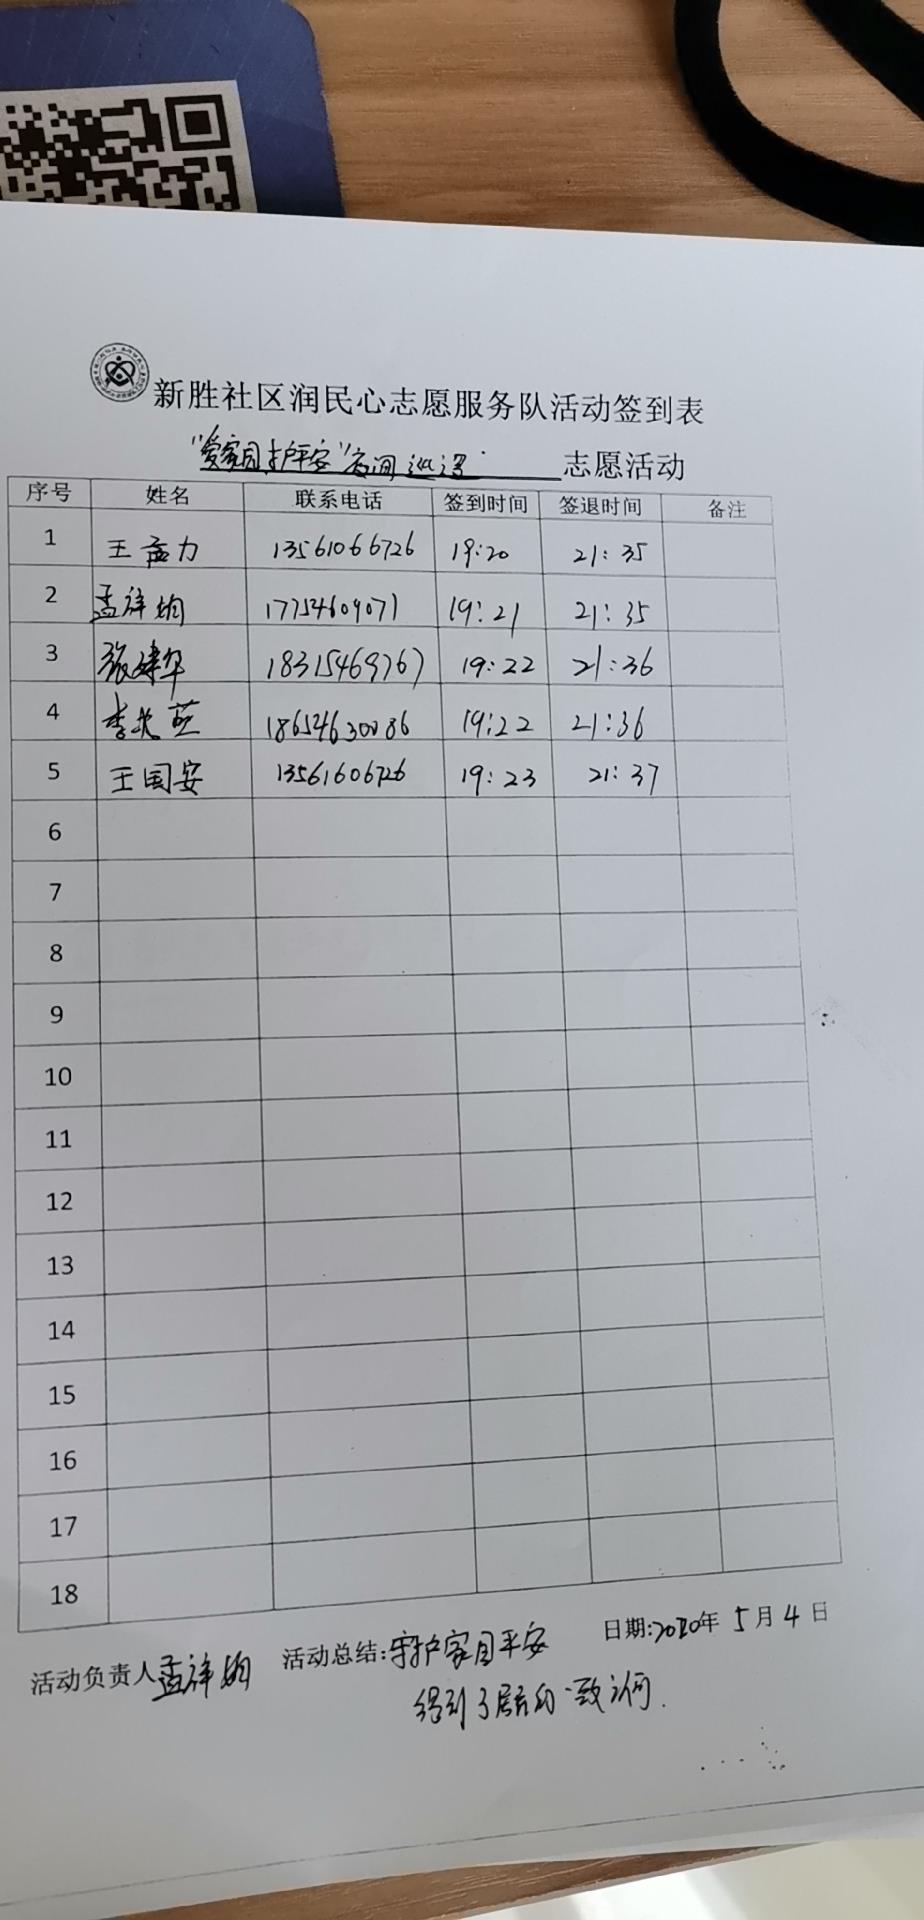 新胜社区润民心志愿服务队活动签到表
"爱家园护平安"夜间巡逻 志愿活动
序号 姓名 联系电话 签到时间 签退时间 备注
1 王孟力 13561066726 19:20 21:35
2 孟祥娟 17754609071 19:21 21:35
3 张建华 18315469767 19:22 21:36
4 李英 18654630086 19:22 21:36
5 王国安 13561606726 19:23 21:37
6
7
8
9
10
11
12
13
14
15
16
17
18
日期:2020年 5月 4日
活动负责人孟祥娟 活动总结:守护家园平安
得到了居民的一致